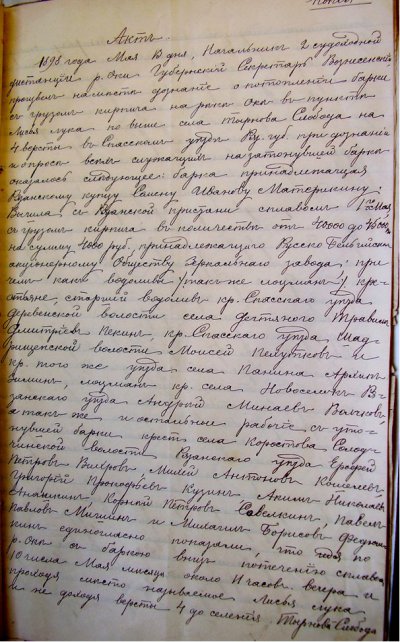 Копія
Актъ.
1898 года Мая 13 дня, Начальникъ 2 судоходной
дистанціи р. Оки Губернскій Секретарь Вознесенскій
произвелъ на мѣстѣ дознаніе о потопленіи баржи
съ грузомъ кирпича на рѣкѣ Окѣ въ пунктѣ
Лисья лука по выше села Тырнова Слобода на
4 версты въ Спасскомъ уѣздѣ Ряз. губ. при дознаніи
и опросѣ всѣхъ служащихъ на затонувшей баржѣ
оказалось слѣдующее: баржа принадлежащая
Рязанскому купцу Семену Иванову Матеркину,
вышла съ Рязанской пристани сплавомъ 1го Мая
съ грузомъ кирпича въ количествѣ отъ 40000 до 45000
на сумму 4000 руб. принадлежащаго Русско Бельгійскому
акціонерному Обществу зеркальнаго завода; при
чемъ какъ водоливы (также лоцманъ) кре-
стьяне, старшій водоливъ кр. Спасскаго уѣзда
деревенской волости села Дегтянаго Правилъ
Дмитріевъ Кекинъ, кр. Спасскаго уѣзда, Шад-
рищенской волости Моисей и
кр. того же уѣзда села Панина
Зиминъ, лоцманъ кр. села Новоселки Ря-
занскаго уѣзда Андрей Минаевъ Волчковъ,
а такъ же и остальные рабочіе съ уто-
нувшей баржи крест. села Коростова Солод-
чинской волости Рязанскаго уѣзда Ерофей
Петровъ Вихровъ, Антоновъ
Григорій Прокофьевъ Кузинъ, Акимъ Николаевъ
Корней Петровъ Савелкинъ, Павелъ
Павловъ Мишинъ и Михаилъ Борисовъ
единогласно показали, что идя по
р. Окѣ съ баржою внизъ по теченію сплавомъ
10 числа Мая мѣсяца около 11 часовъ вечера и
проходя мѣсто называемое Лисья лука
и не доходя версты 4 до селенія Тырнова Слобода